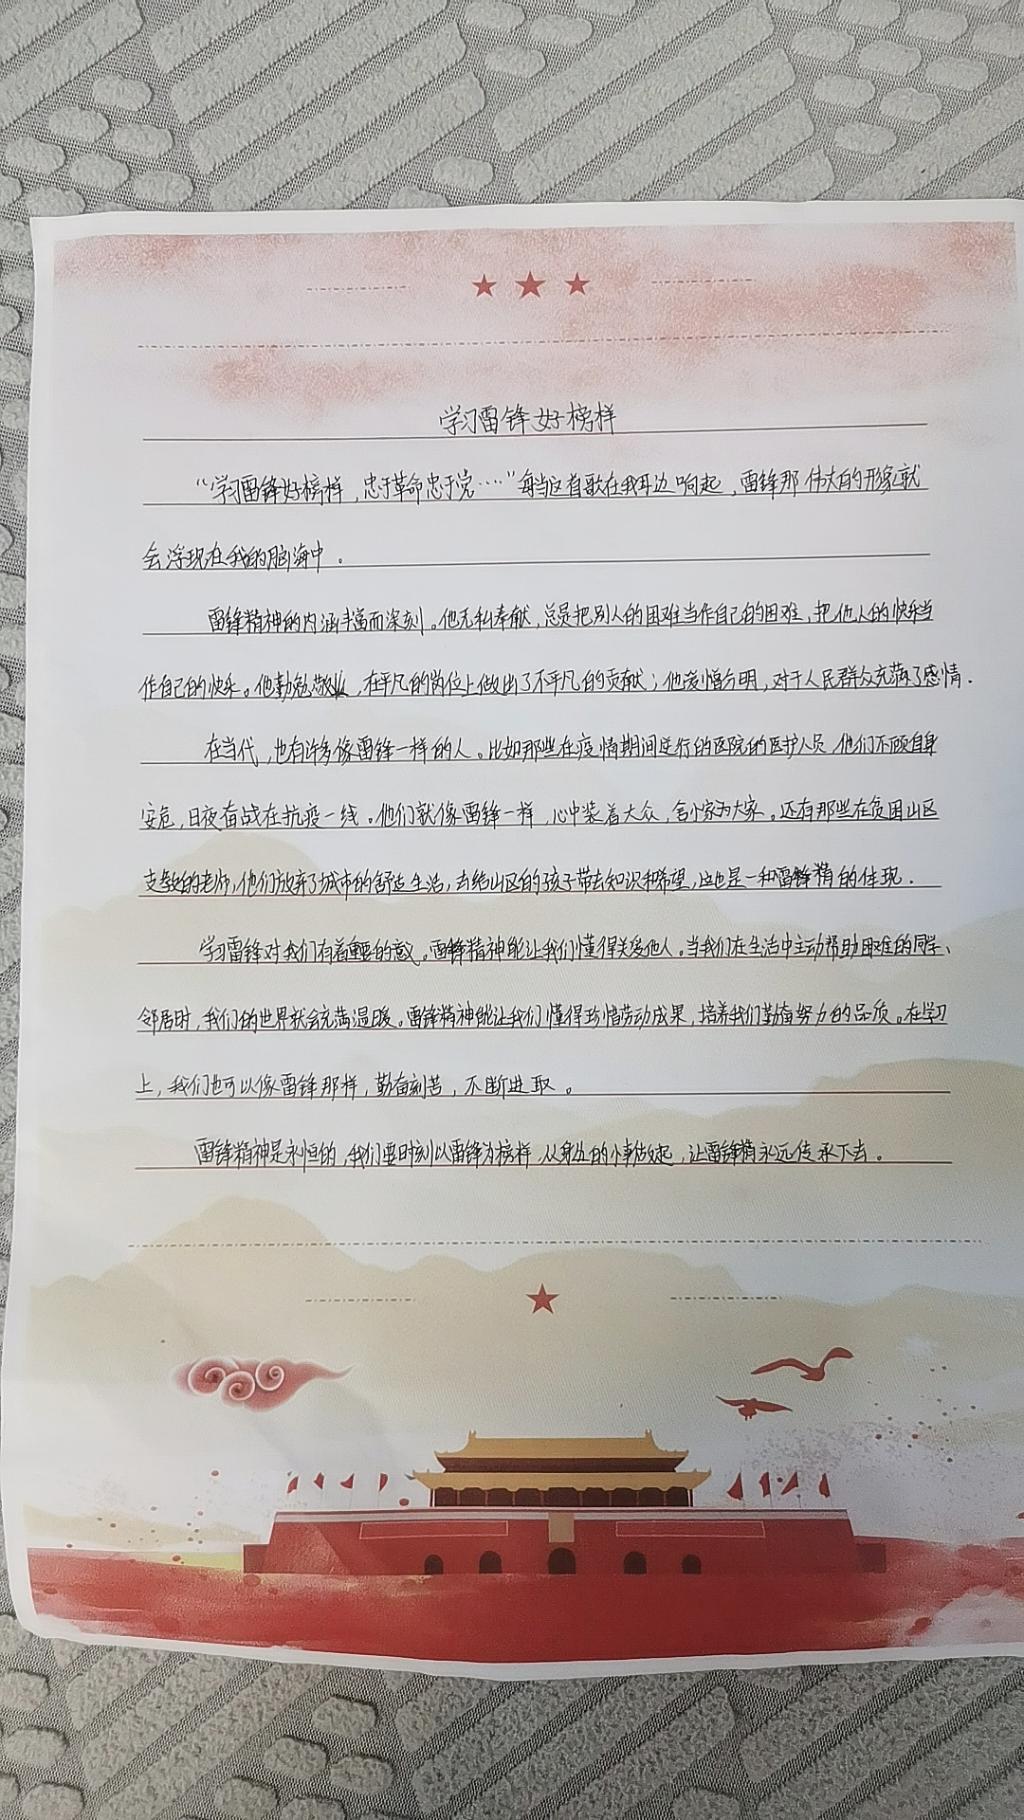 学习雷锋好榜样
“学习雷锋好榜样，忠于革命忠于党……”每当这首歌在我耳边响起，雷锋那伟大的形象就
会浮现在我的脑海中。
雷锋精神的内涵丰富而深刻。他无私奉献，总是把别人的困难当作自己的困难，把他人的快乐当
作自己的快乐。他勤勉敬业，在平凡的岗位上做出了不平凡的贡献；他爱憎分明，对于人民群众充满了感情．
在当代，也有许多像雷锋一样的人。比如那些在疫情期间逆行的医院的医护人员，他们不顾自身
安危，日夜奋战在抗疫一线。他们就像雷锋一样，心中装着大众，舍小家为大家。还有那些在贫困山区
支教的老师，他们放弃了城市的舒适生活，去给山区的孩子带去知识和希望，这也是一种雷锋精的体现．
学习雷锋对我们有着重要的意义。雷锋精神能让我们懂得关爱他人。当我们在生活中主动帮助困难的同学、
邻居时，我们的世界就会充满温暖。雷锋精神能让我们懂得珍惜劳动成果，培养我们勤奋努力的品质。在学习
上，我们也可以像雷锋那样，勤奋刻苦，不断进取。
雷锋精神是永恒的，我们要时刻以雷锋为榜样，从身边的小事做起，让雷锋精永远传承下去。